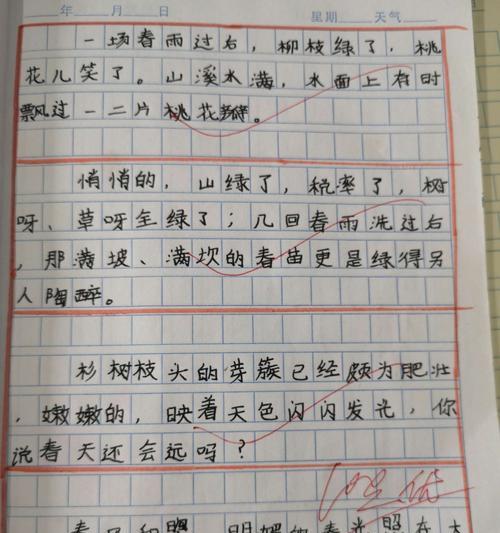 年 月 日 星期 天气
一场春雨过右，柳枝绿了，桃
花儿笑了。山溪水满，水面上有时
飘风过一二片桃花瓣。
悄悄的，山绿了，税率了，树
呀、草呀全绿了；几回春雨洗过右
，那满坡、满坎的春苗更是绿得另
人陶醉。
杉树枝头的芽簇已经颇为肥壮
，嫩嫩的，映着天色闪闪发光，你
说春天还会远吗？
优
春风和照，明媚的春光照在大